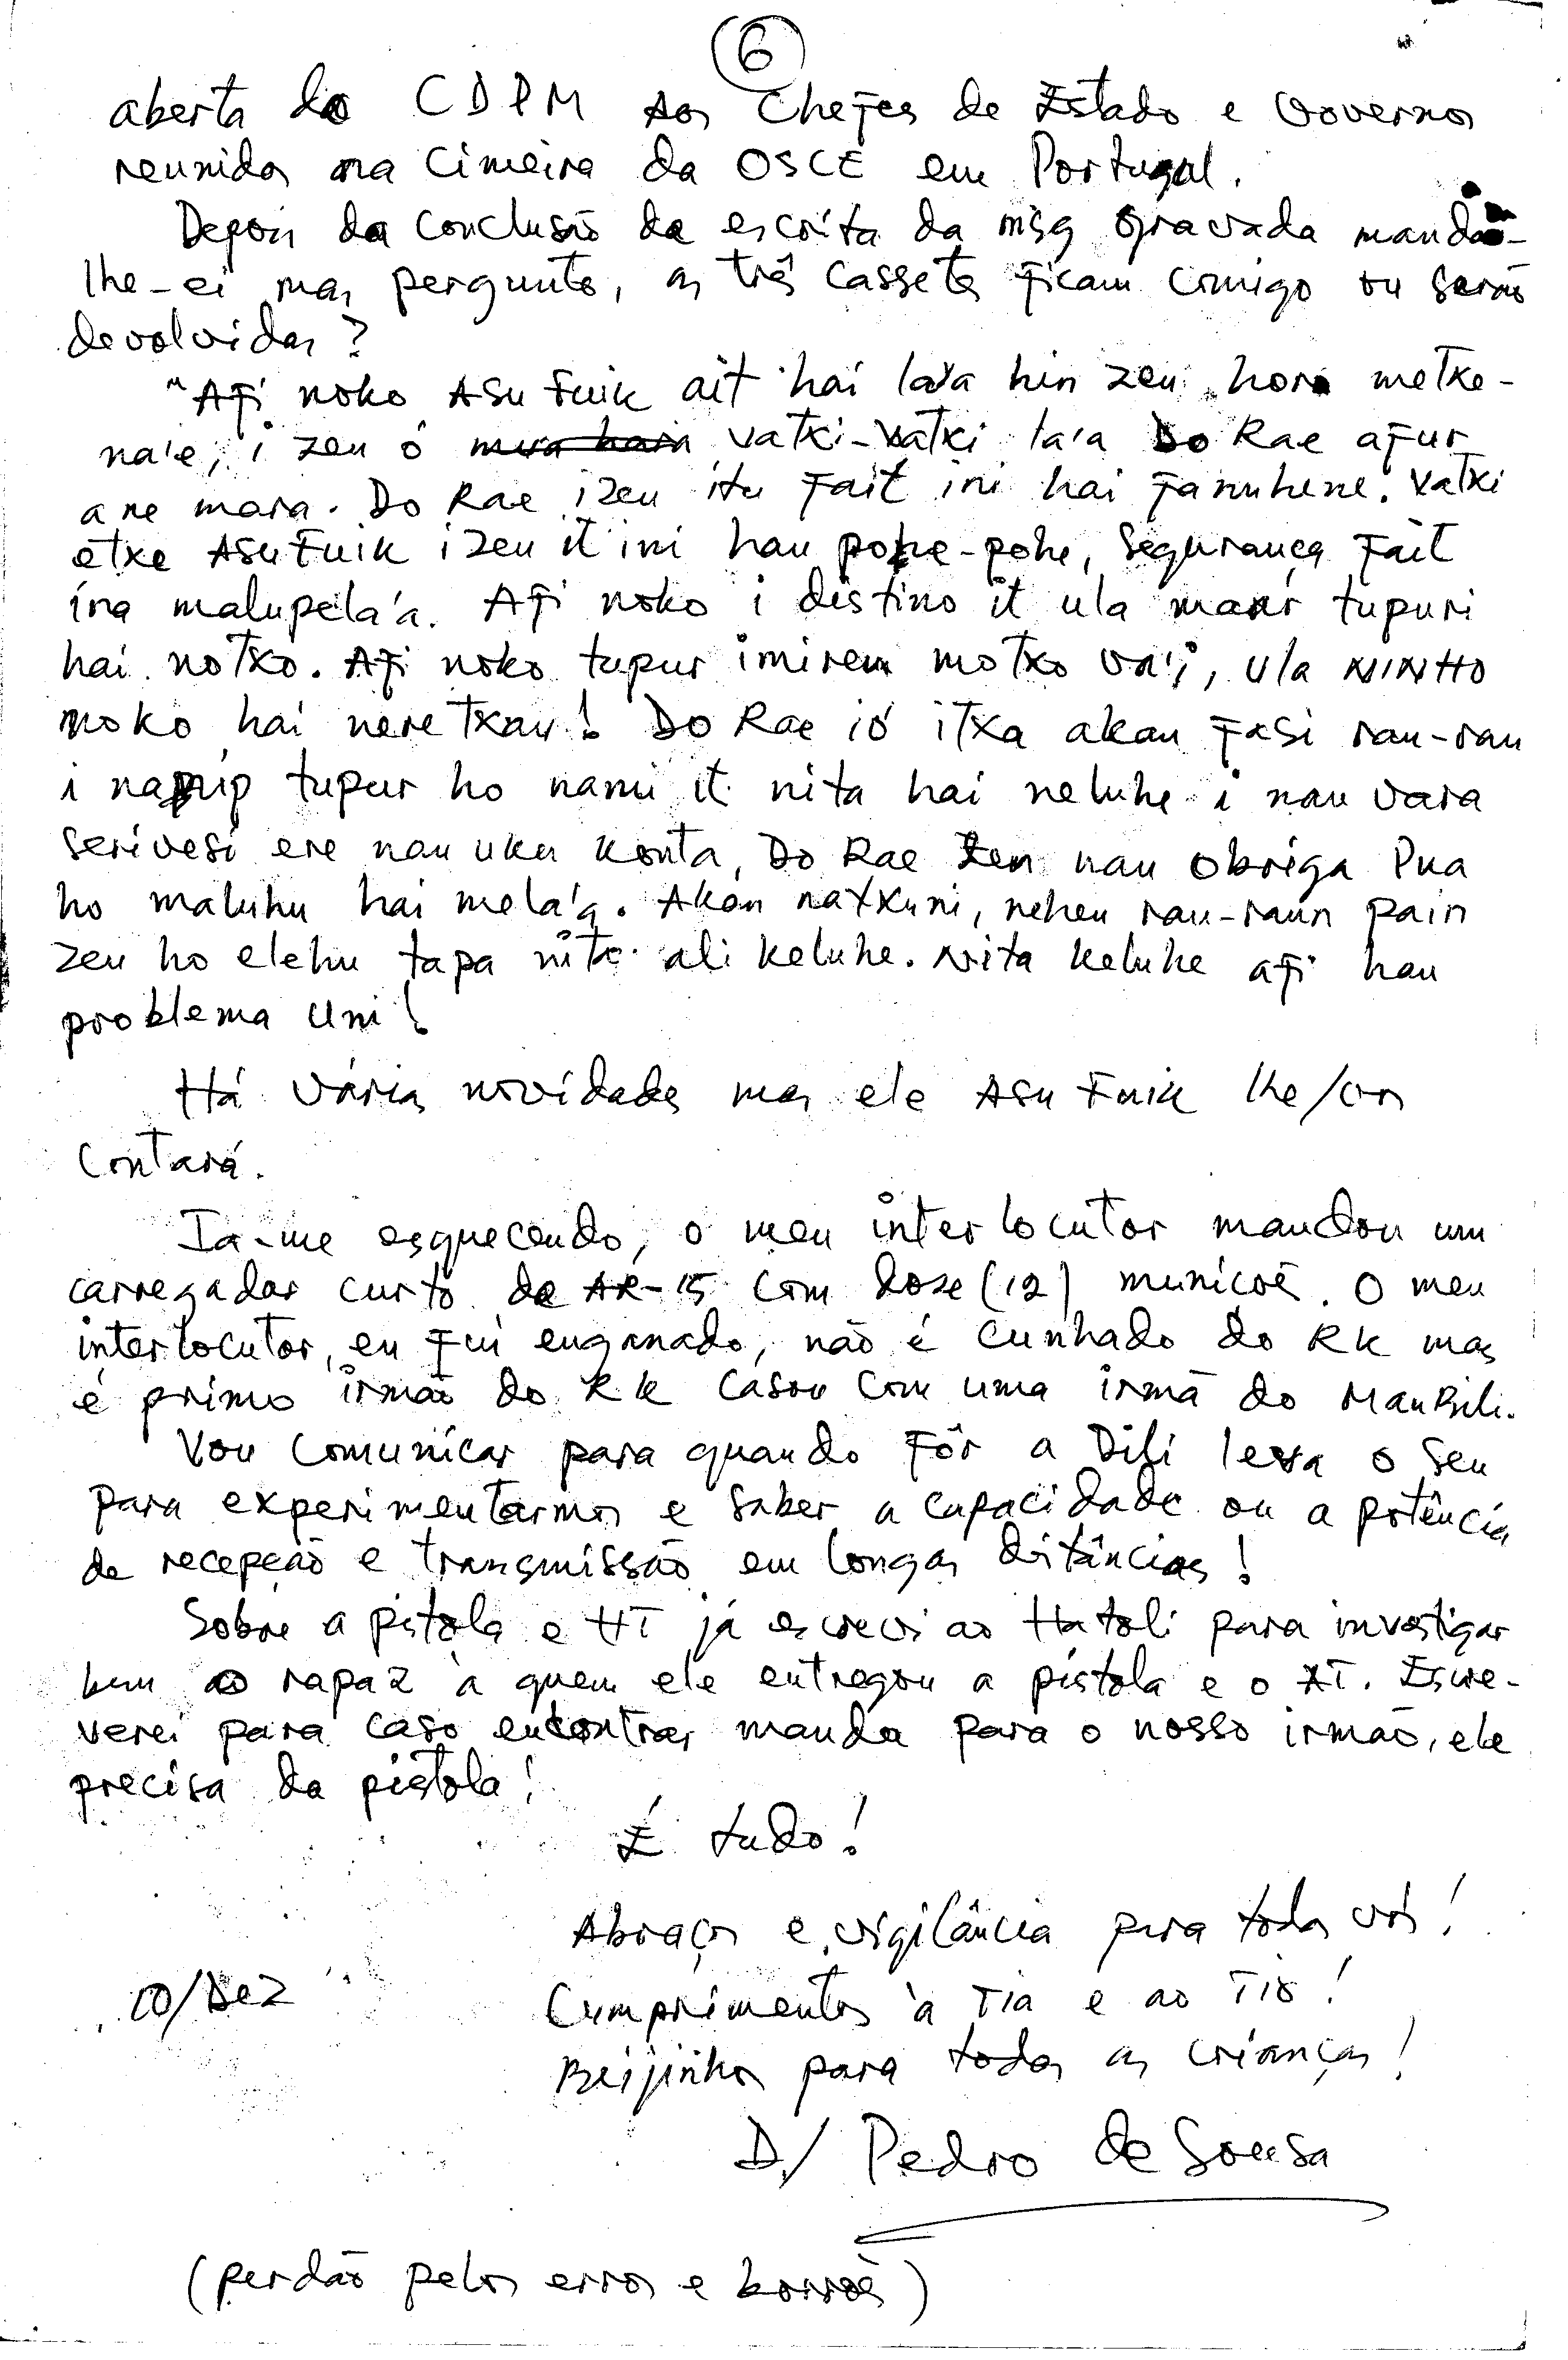 6
aberta do CDPM aos Chefes de Estado e Governos
reunidos na Cimeira da OSCE em Portugal.
Depois da conclusão da escrita da msg gravada manda-
lhe-ei mas pergunto, as três cassetes ficam comigo ou serão
devolvidas?
"Afi noko Asu Fuik ait hai la'a hin zeu hora metxe-
na'e, i zeu ó vatxi-vatxi la'a Do Rae afur
ane mara. Do Rae izeu itu fait ini hai fanuhene. Vatxi
etxe Asu Fuik i zeu it ini hau pohe-pohe, segurança fait
ina malupela'a. Afi noko i distino it ula tupuri
hai notxo. Afi noko tupur imiren motxo va'i, ula NINHO
moko hai neretxau! Do Rae ió itxa akau fasi rau-rau
i tupur ho nami it nita hai neluhe i nau vara
serivesi ere nau uku konta, Do Rae zeu nau obriga Pua
ho maluhu hai mela'a. Akan natxuni, neheu rau-raun pain
zeu ho elehu tapa nita ali keluhe. Nita keluhe afi hau
problema uni!
Há várias novidades mas ele Asu Fuik lhe/vos
contará.
Ia-me esquecendo, o meu interlocutor mandou um
carregador curto de AR-15 com doze (12) munições. O meu
interlocutor, eu fui enganado, não é cunhado do RK mas
é primo irmão do RK casou com uma irmã do MauBili.
Vou comunicar para quando fôr a Dili leva o seu
para experimentarmos e saber a capacidade ou a potência
de recepção e transmissão em longas distâncias!
Sobre a pistola e HT já escrevi ao Hatoli para investigar
bem ao rapaz à quem ele entregou a pistola e o HT. Escre-
verei para caso encontrar manda para o nosso irmão, ele
precisa da pistola!
É tudo!
Abraços e vigilância para todos vós!
10/Dez
Cumprimentos à Tia e ao Tio!
Beijinhos para todas as crianças!
D/ Pedro de Sousa
(perdão pelos erros e borrões)